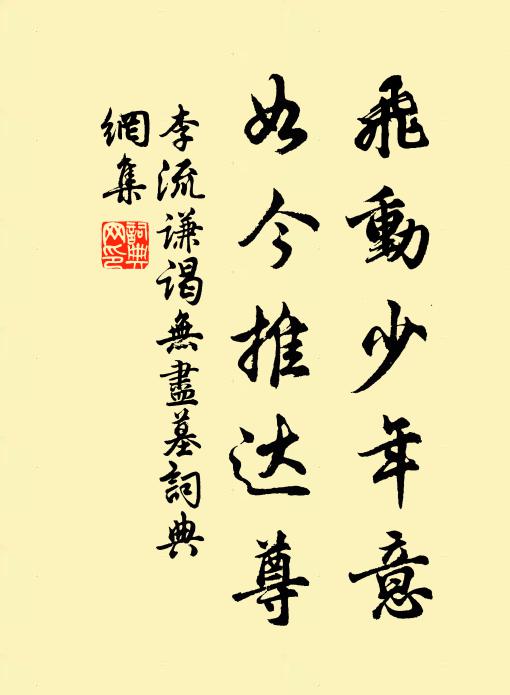 飛動少年意
如今推达尊
李流谦谒無盡墓詞典
網集
詞典
网印